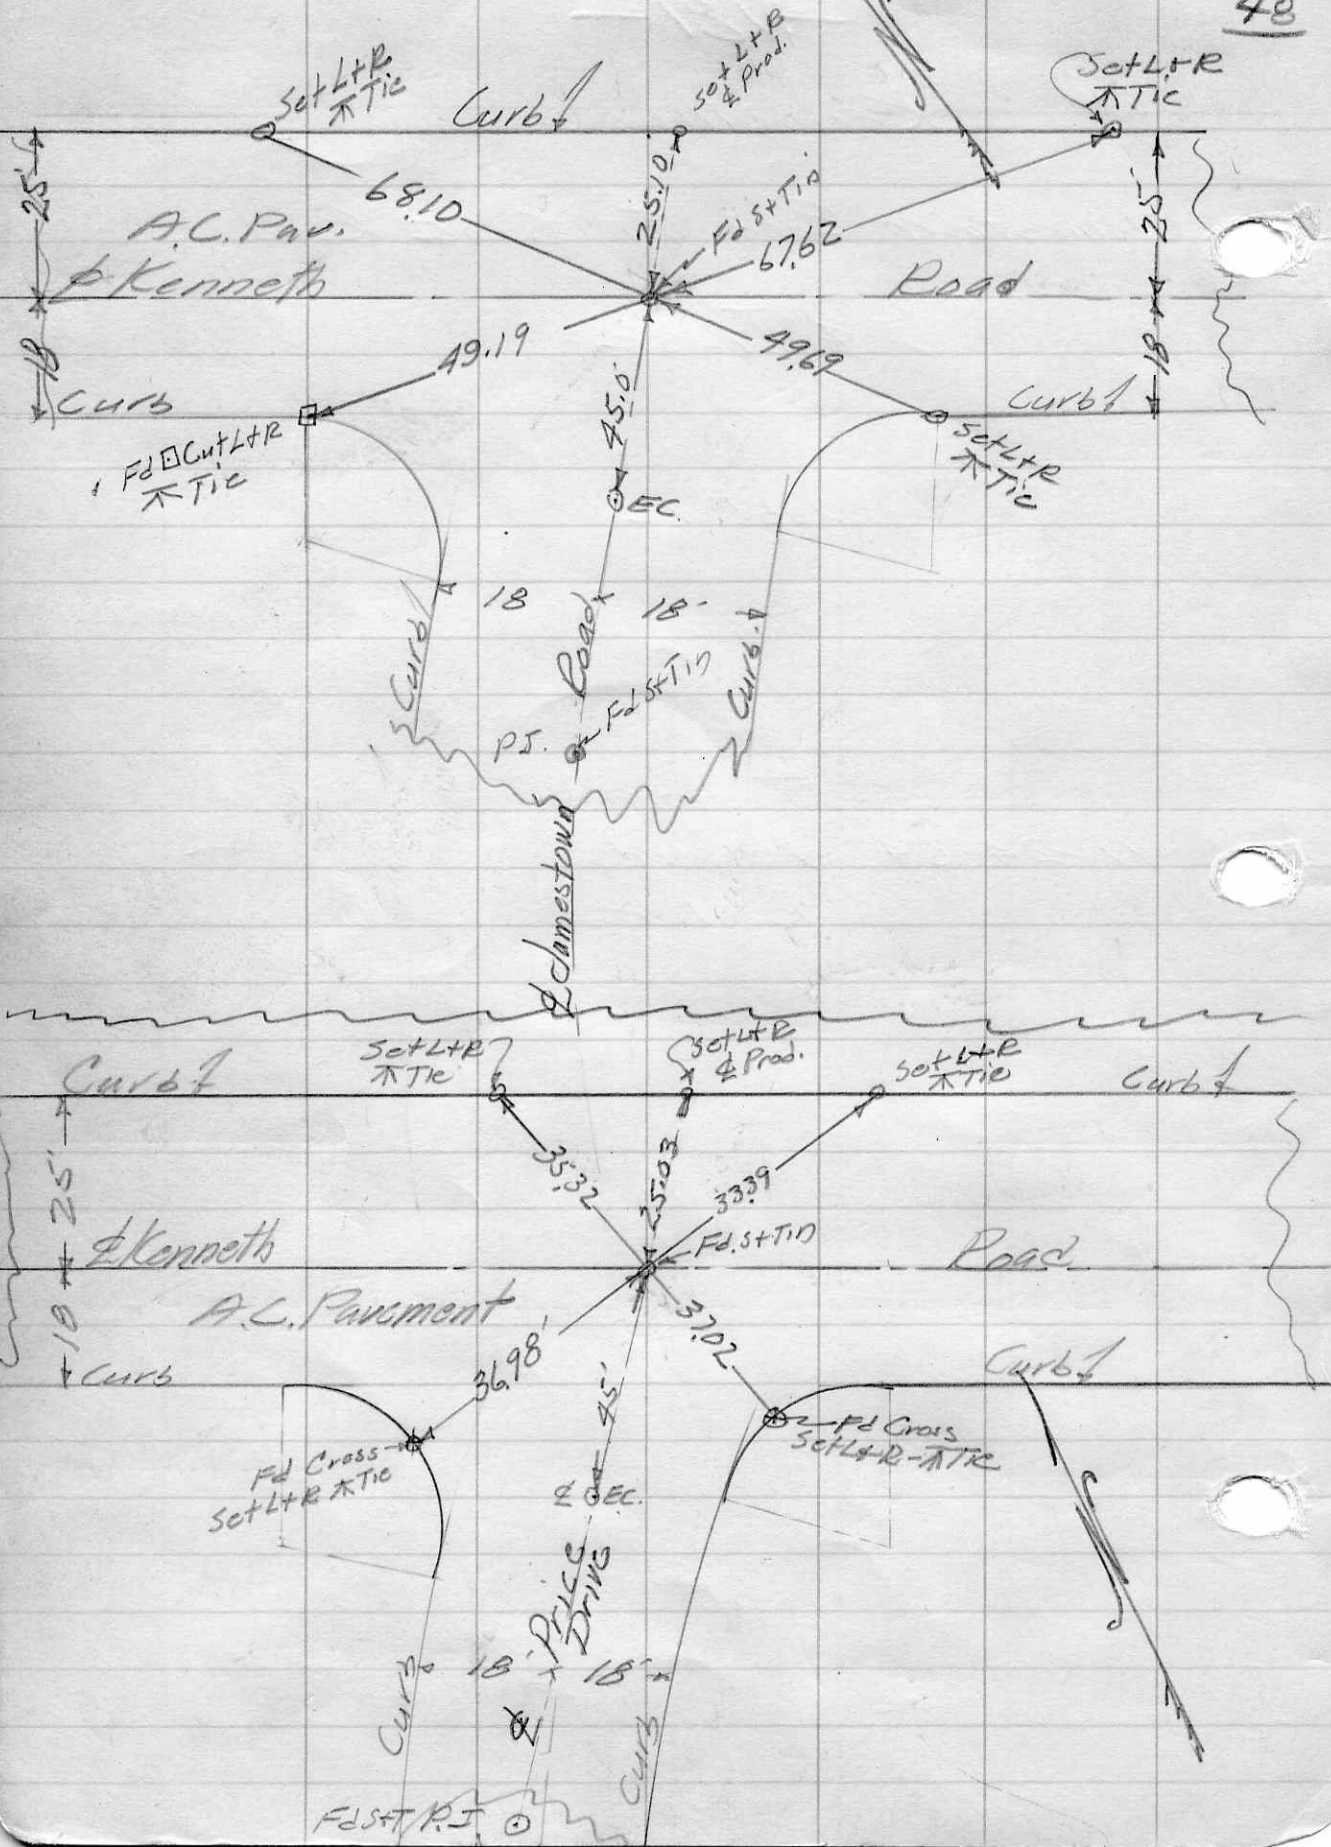 48
Set L+R
Tie
Curb
Set L+R
℄ Prod.
Set L+R
Tie
25'
68.10
25.10
Fd S+Tin
67.62
25'
A.C. Pav.
℄ Kenneth
Road
18
49.19
49.69
18
Curb
45.0'
Curb
Fd ⊡ Cut L+R
Tie
Set L+R
Tie
EC.
18
18'
Curb
Road
Curb
Fd S+Tin
P.I.
℄ Jamestown
Set L+R
Tie
Set L+R
℄ Prod.
Set L+R
Tie
Curb
Curb
25'
35.32
25.03
33.39
℄ Kenneth
Fd. S+Tin
Road
A.C. Pavement
18
37.02
36.98'
Curb
45'
Curb
Fd Cross
Set L+R Tie
Fd Cross
Set L+R - Tie
℄ EC.
Price
Drive
18'
18'
Curb
℄
Curb
Fd S+T P.I.